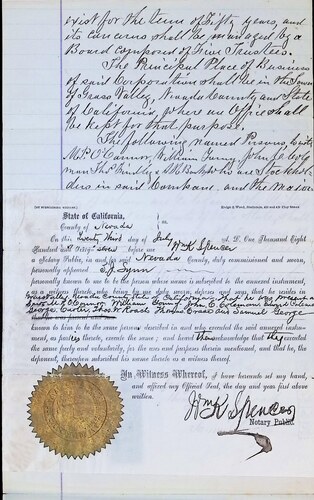 exist for the term of Fifty years, and
its concerns shall be managed by a
Board composed of Five Trustees.
The Principal Place of Business
of said Corporation shall be in the Town
of Grass Valley, Nevada County and State
of California, where an Office shall
be kept for that purpose.
The following named Persons to wit
M. P. O'Connor, William John C. Cole
man Thos. Findley & A. B. who are Stockhol
ders in said Company, and the Major
State of California,
County of Nevada
On this Twenty third day of July A. D. One Thousand Eight
Hundred and Sixty Wm K Spencer
a Notary Public, in and for said Nevada County, duly commissioned and sworn,
personally appeared S. J.
personally known to me to be the person whose name is subscribed to the annexed instrument,
as a witness thereto, who being by me duly sworn, deposed and said that he resides in
Grass Valley Nevada County State of California, that he was present and
saw M. P. O'Connor, William John C. Coleman,
George Carter, Thos. W. Roach, Thomas and Samuel George
known to him to be the same persons described in and who executed the said annexed instru-
ment, as parties thereto, execute the same; and heard them acknowledge that they executed
the same freely and voluntarily, for the uses and purposes therein mentioned, and that he, the
deponent, thereupon subscribed his name thereto as a witness thereof.
In Witness Whereof, I have hereunto set my hand,
and affixed my Official Seal, the day and year first above
written.
Wm K Spencer
Notary Public